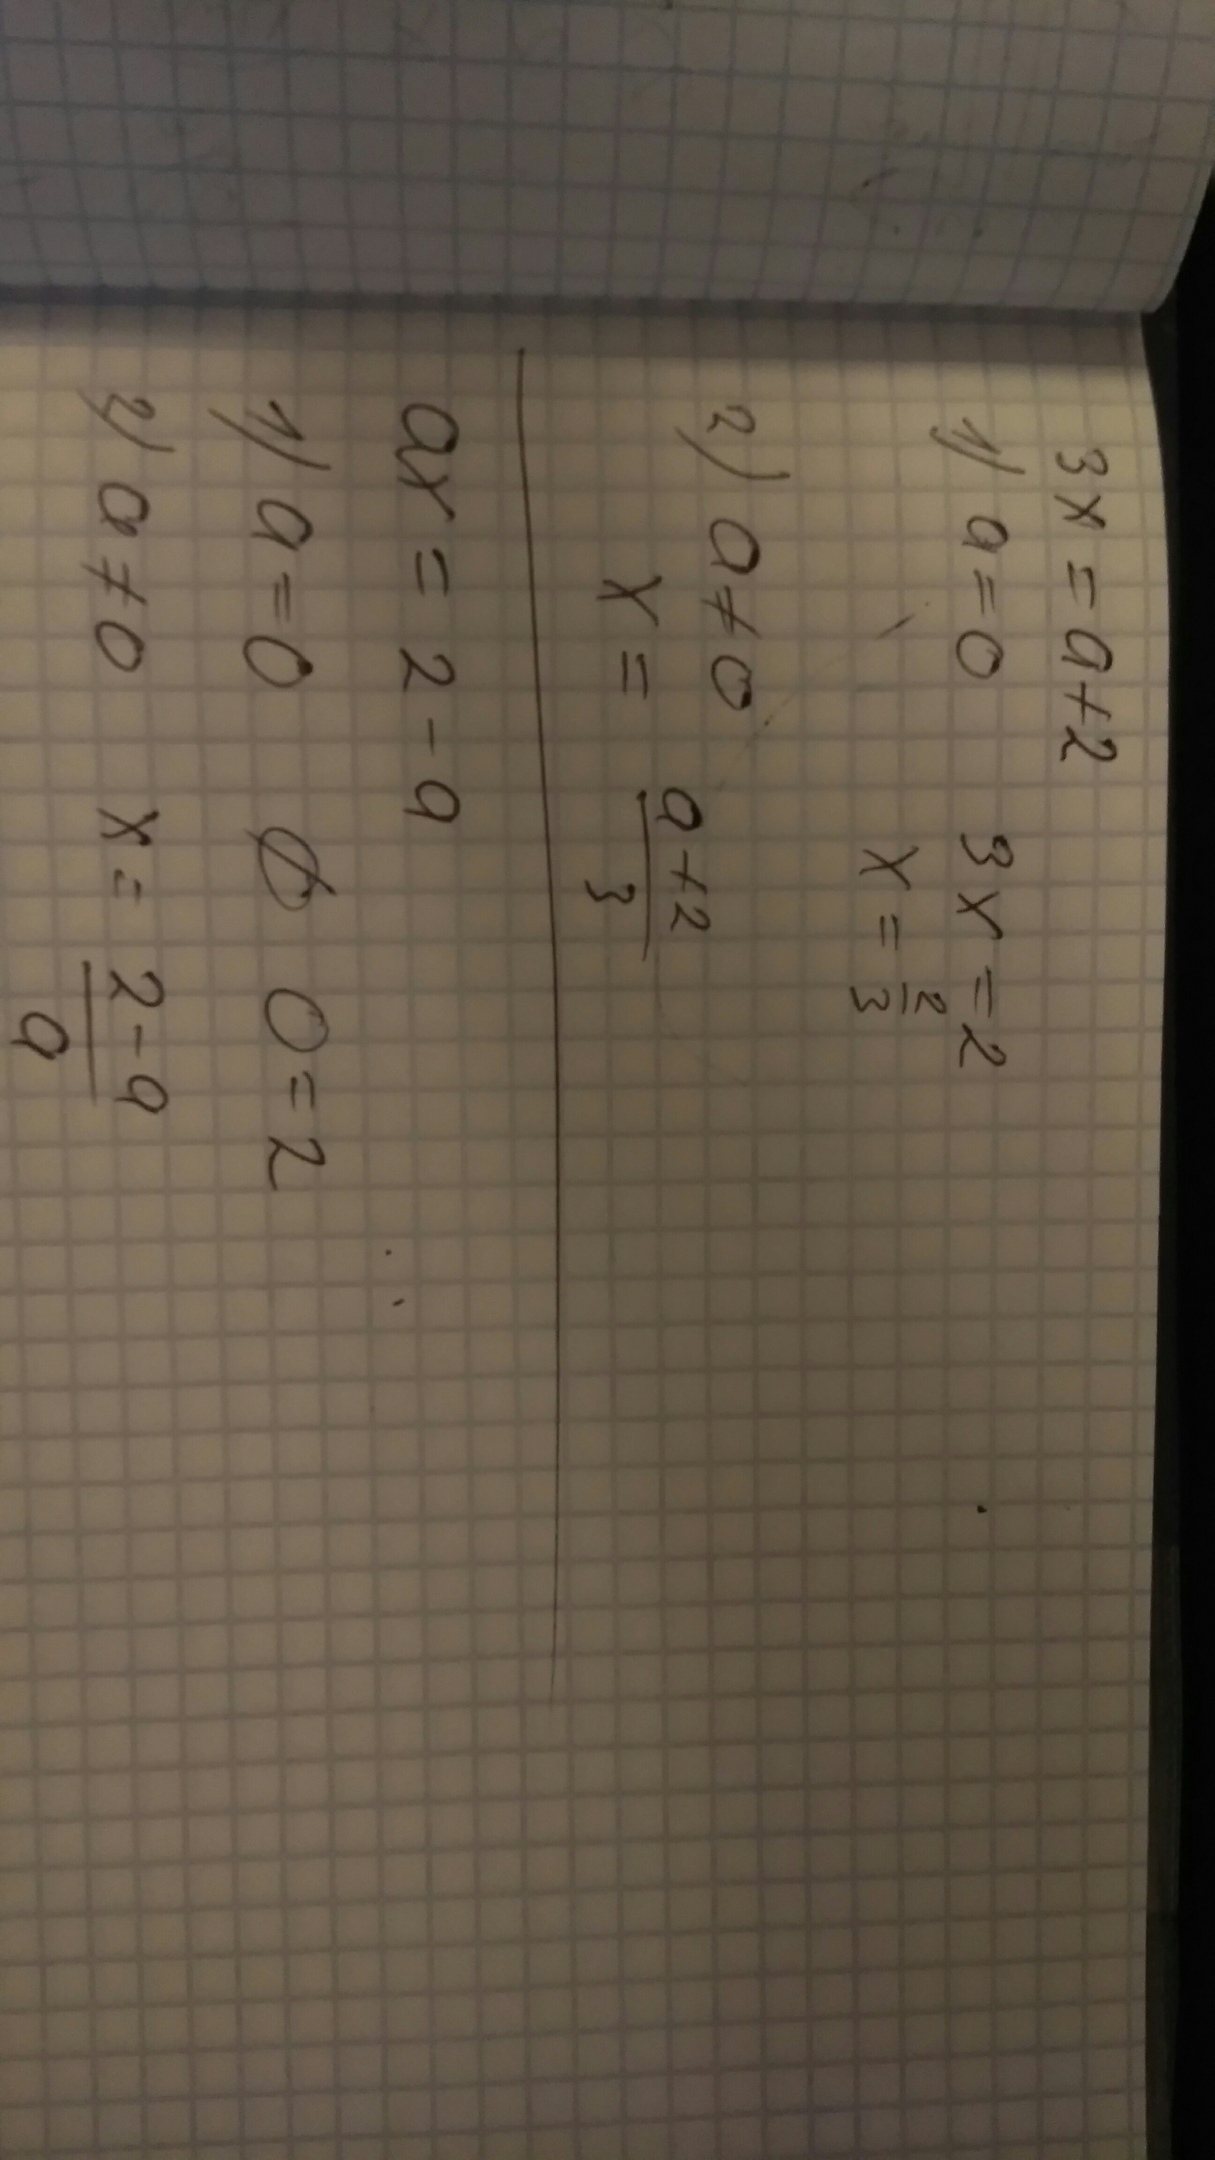 3x = a+2
1) a = 0 3x = 2
x = 2/3
2) a ≠ 0
x = (a+2)/3
ax = 2 - a
1) a = 0 ∅ 0 = 2
2) a ≠ 0 x = (2-a)/a